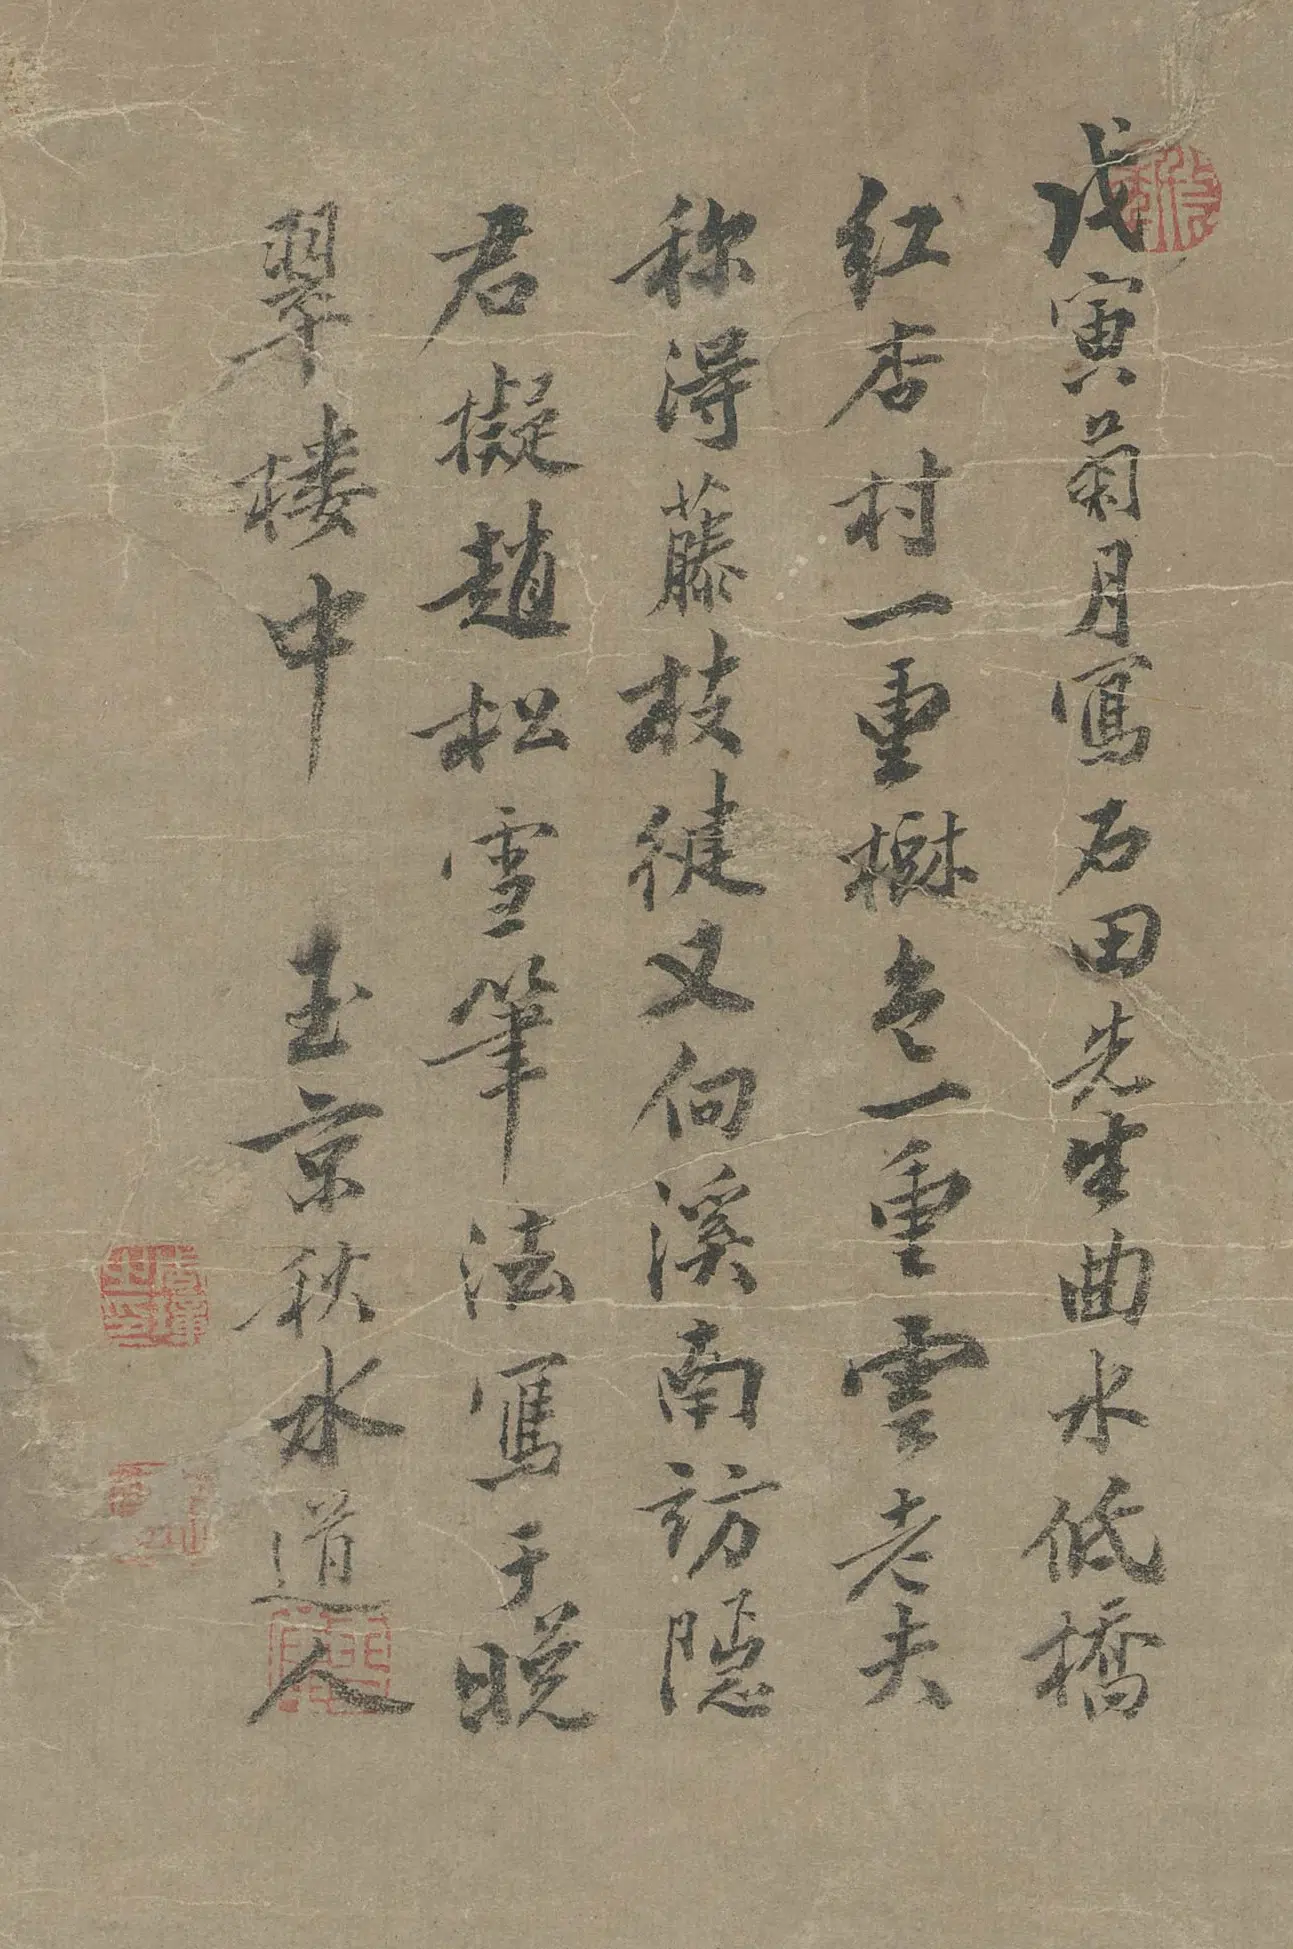 戊寅菊月寫石田先生曲水低橋
紅杏村一重樹色一重雲老夫
称得藤枝健又向溪南訪隱
君擬趙松雪筆法寫于晚
翠楼中 玉京秋水道人